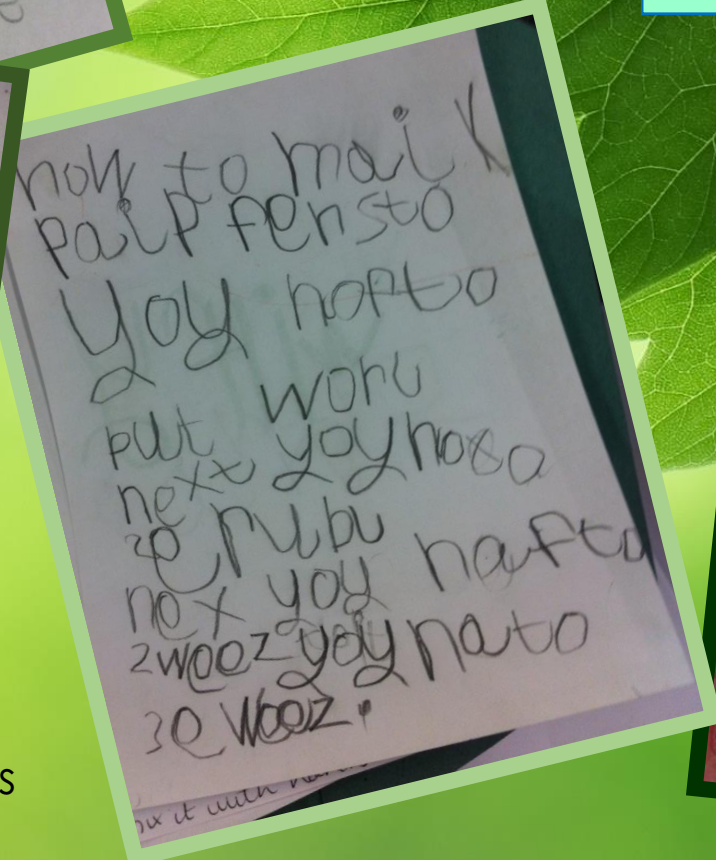 how to maik
paip fensto
yoy hofto
put worl
next yoy hoto
rubu
nex yoy hafto
2weez yoy nato
3e weez.
it with
s